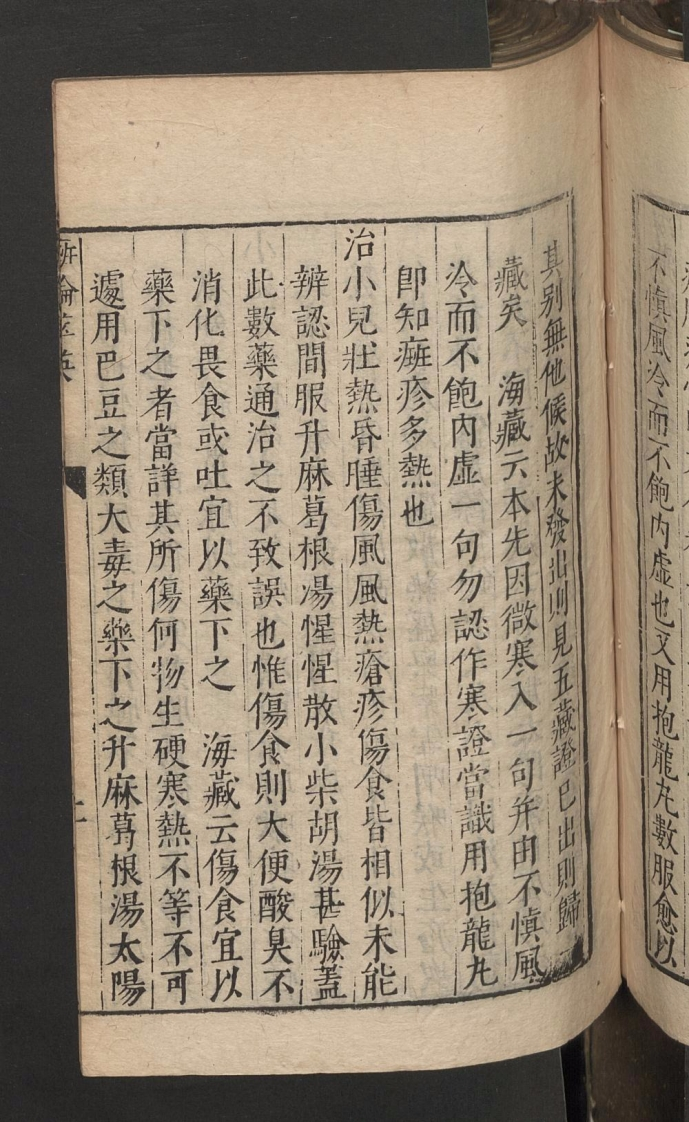 不慎風冷而不飽內虛也又用抱龍丸數服愈以
其別無他候故未發出則見五藏證已出則歸一
藏矣　海藏云本先因微寒入一句并由不慎風
冷而不飽內虛一句勿認作寒證當識用抱龍丸
卽知癍疹多熱也
治小兒壯熱昏睡傷風風熱瘡疹傷食皆相似未能
辨認間服升麻葛根湯惺惺散小柴胡湯甚驗蓋
此數藥通治之不致誤也惟傷食則大便酸臭不
消化畏食或吐宜以藥下之　海藏云傷食宜以
藥下之者當詳其所傷何物生硬寒熱不等不可
遽用巴豆之類大毒之藥下之升麻葛根湯太陽